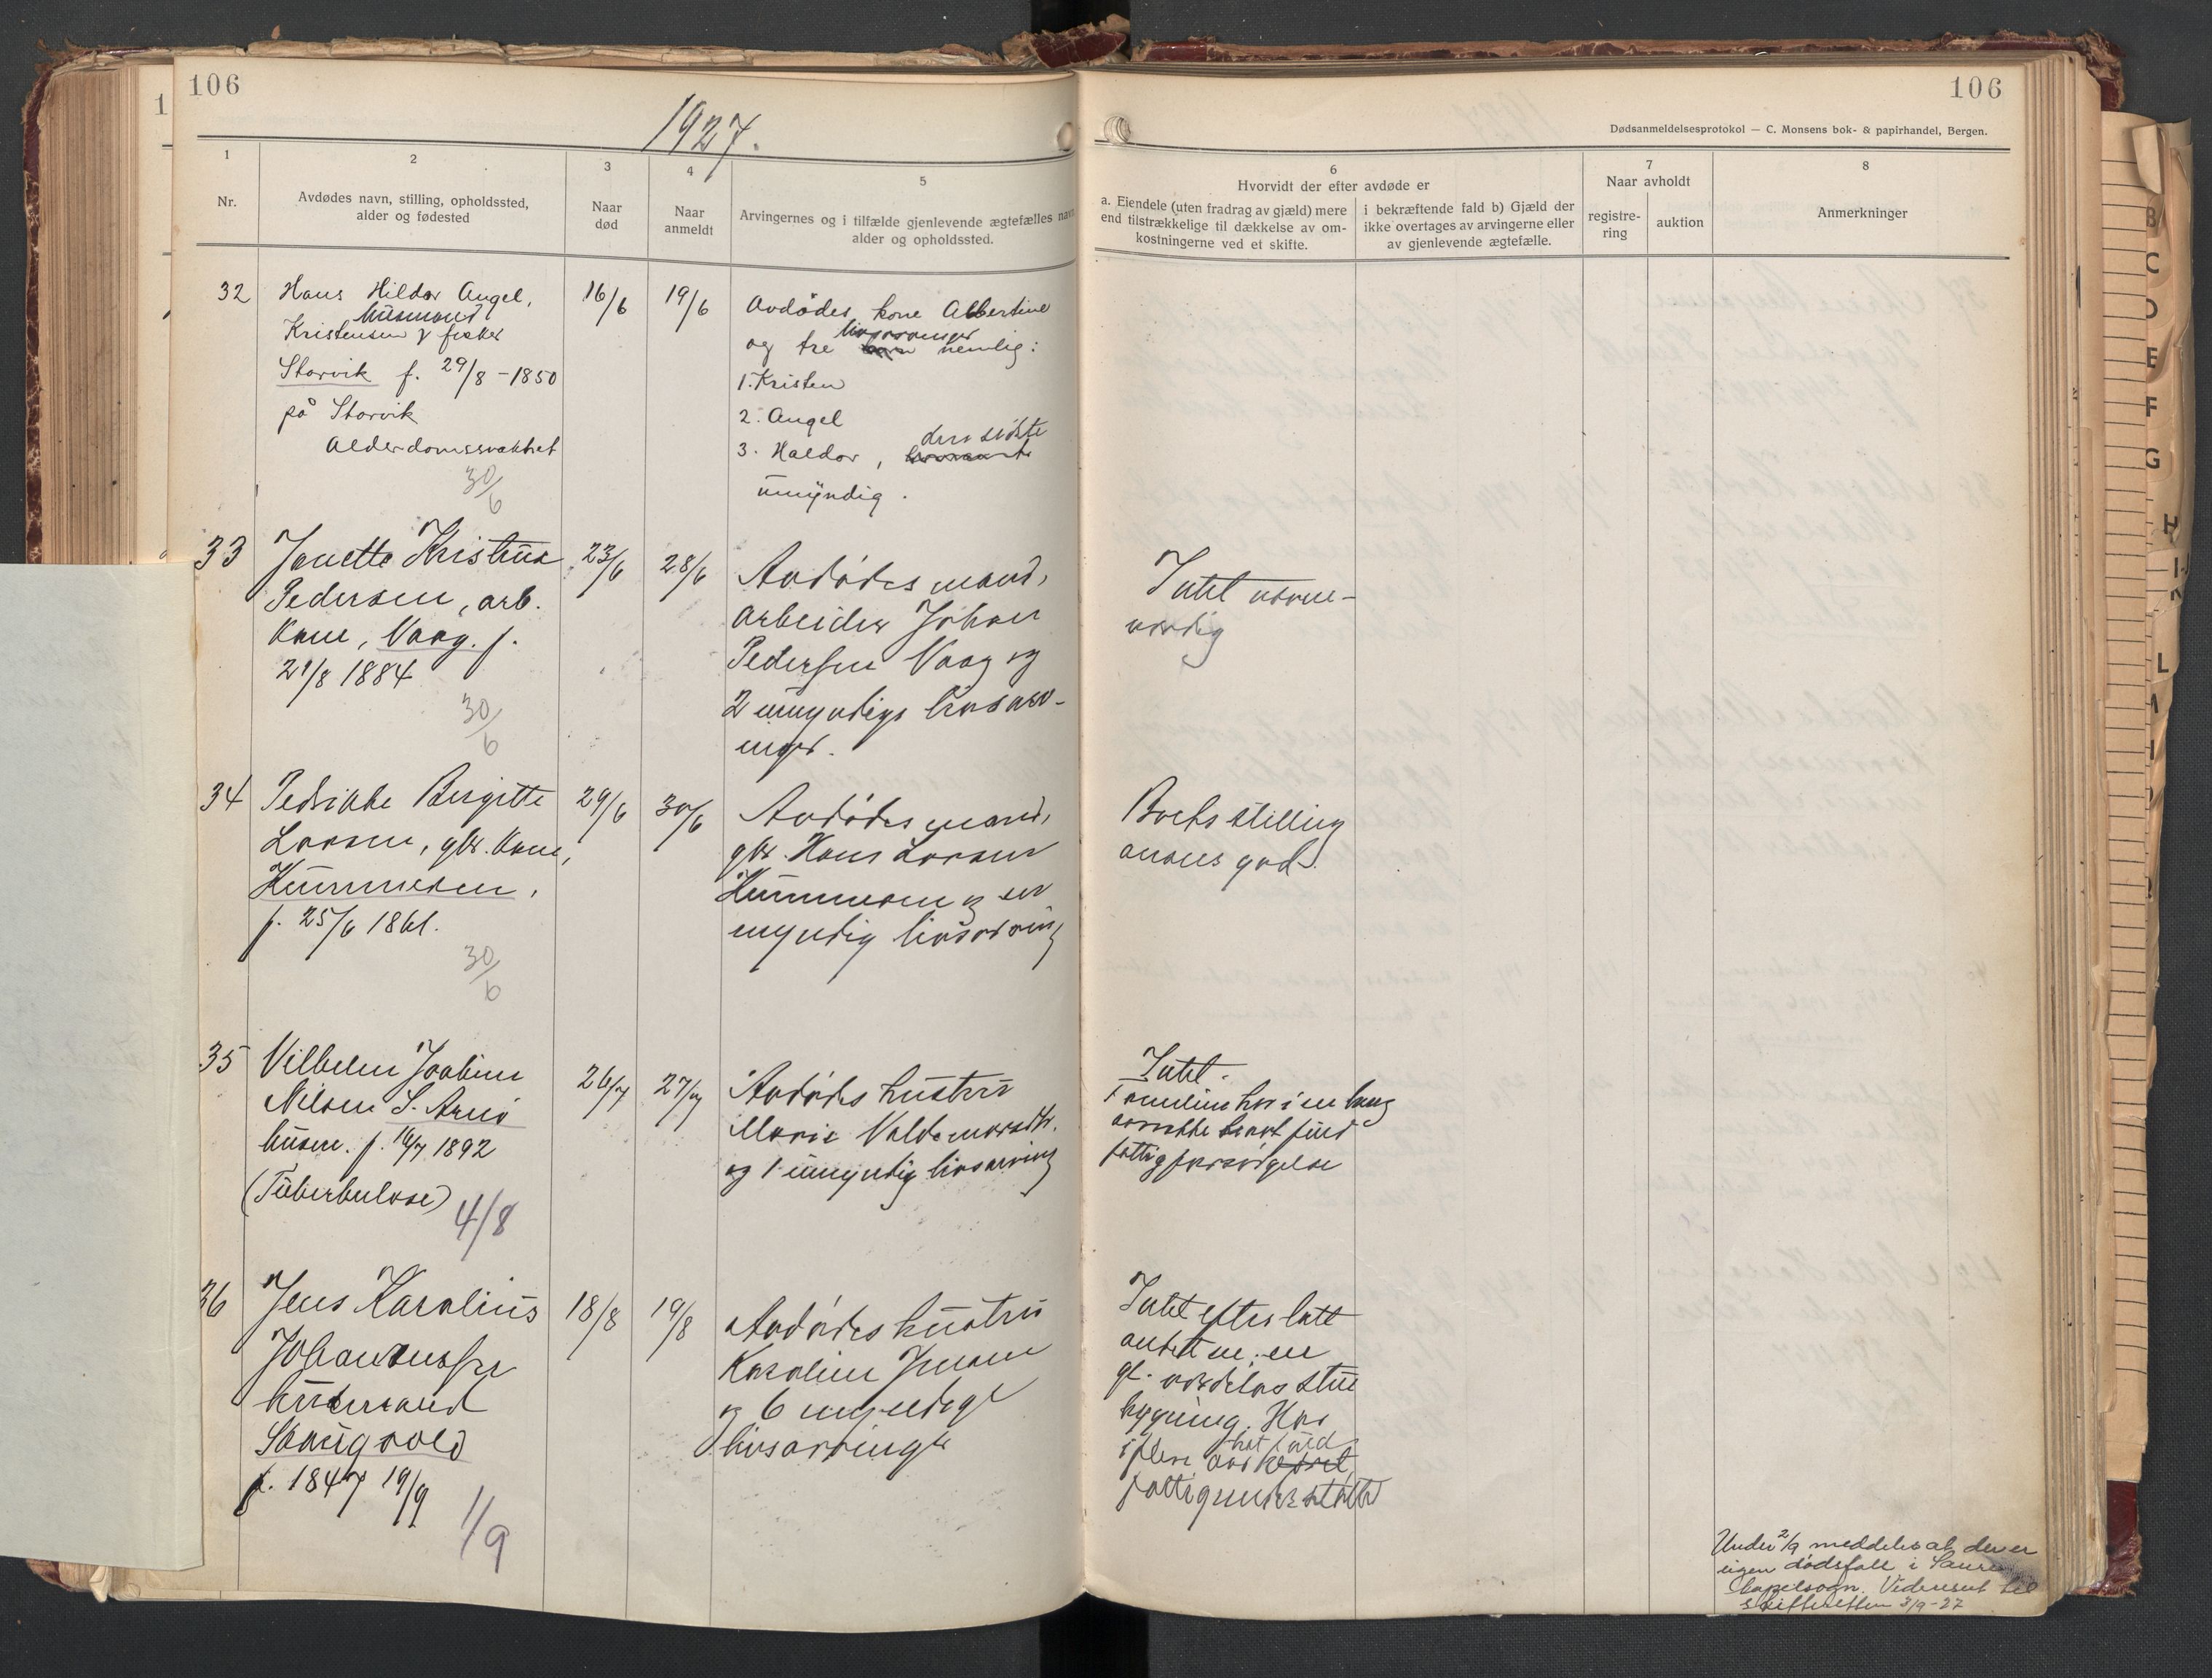 106
1927.
1
Nr.
2
Avdødes navn, stilling, opholdssted,
alder og fødested
3
Naar
død
4
Naar
anmeldt
5
Arvingernes og i tilfælde gjenlevende ægtefælles navn
alder og opholdssted.
32
Hans Hildor Angel,
husmand
Kristensen & fisker
Storvik f. 29/8 - 1850
på Storvik
Alderdomssvakhet
30/6
16/6
19/6
Avdødes kone Albertine
livsarvinger
og tre barn nemlig:
1. Kristen
2. Angel
3. Haldor, den sidste
umyndig.
33
Janette Kristine
Pedersen, arb.
kone, Vaag. f.
21/8 1884
30/6
23/6
28/6
Avdødes mand,
arbeider Johan
Pedersen Vaag og
2 umyndige livsarv-
inger.
34
Pedrikke Birgitte
Larsen, gbr. kone,
f. 25/6 1861.
30/6
29/6
30/6
Avdødes mand,
gbr. Hans Larsen
og en
myndig livsarving
35
Vilhelm Joakim
Nilsen S. Arnø
husm. f. 16/7 1892
(Tuberkulose)
4/8
26/7
27/7
Avdødes hustru
Marie Valdemarsdtr.
og 1 umyndig livsarving
36
Jens Karolius
Johansen
husmand
Skaugvold
f. 1847 19/9
1/9
18/8
19/8
Avdødes hustru
Karoline Jensen
og 6 myndige
livsarvinger
106
Dødsanmeldelsesprotokol — C. Monsens bok- & papirhandel, Bergen.
6
Hvorvidt der efter avdøde er
a. Eiendele (uten fradrag av gjæld) mere
end tilstrækkelige til dækkelse av om-
kostningerne ved et skifte.
i bekræftende fald b) Gjæld der
ikke overtages av arvingerne eller
av gjenlevende ægtefælle.
7
Naar avholdt
registre-
ring
auktion
8
Anmerkninger
Intet nævne-
værdig
Boets stilling
ansees god.
Intet.
Familien har i en lang
aarrække havt fuld
fattigforsørgelse
Intet efterlatt
andet en
gl. værdiløs stue
bygning. Har
i flere aar hat fuld
fattigunderstøttelse
Under 2/9 meddeles at der er
ingen dødsfall i
kapelsogn. Videresendt til
skifteretten 3/9-27